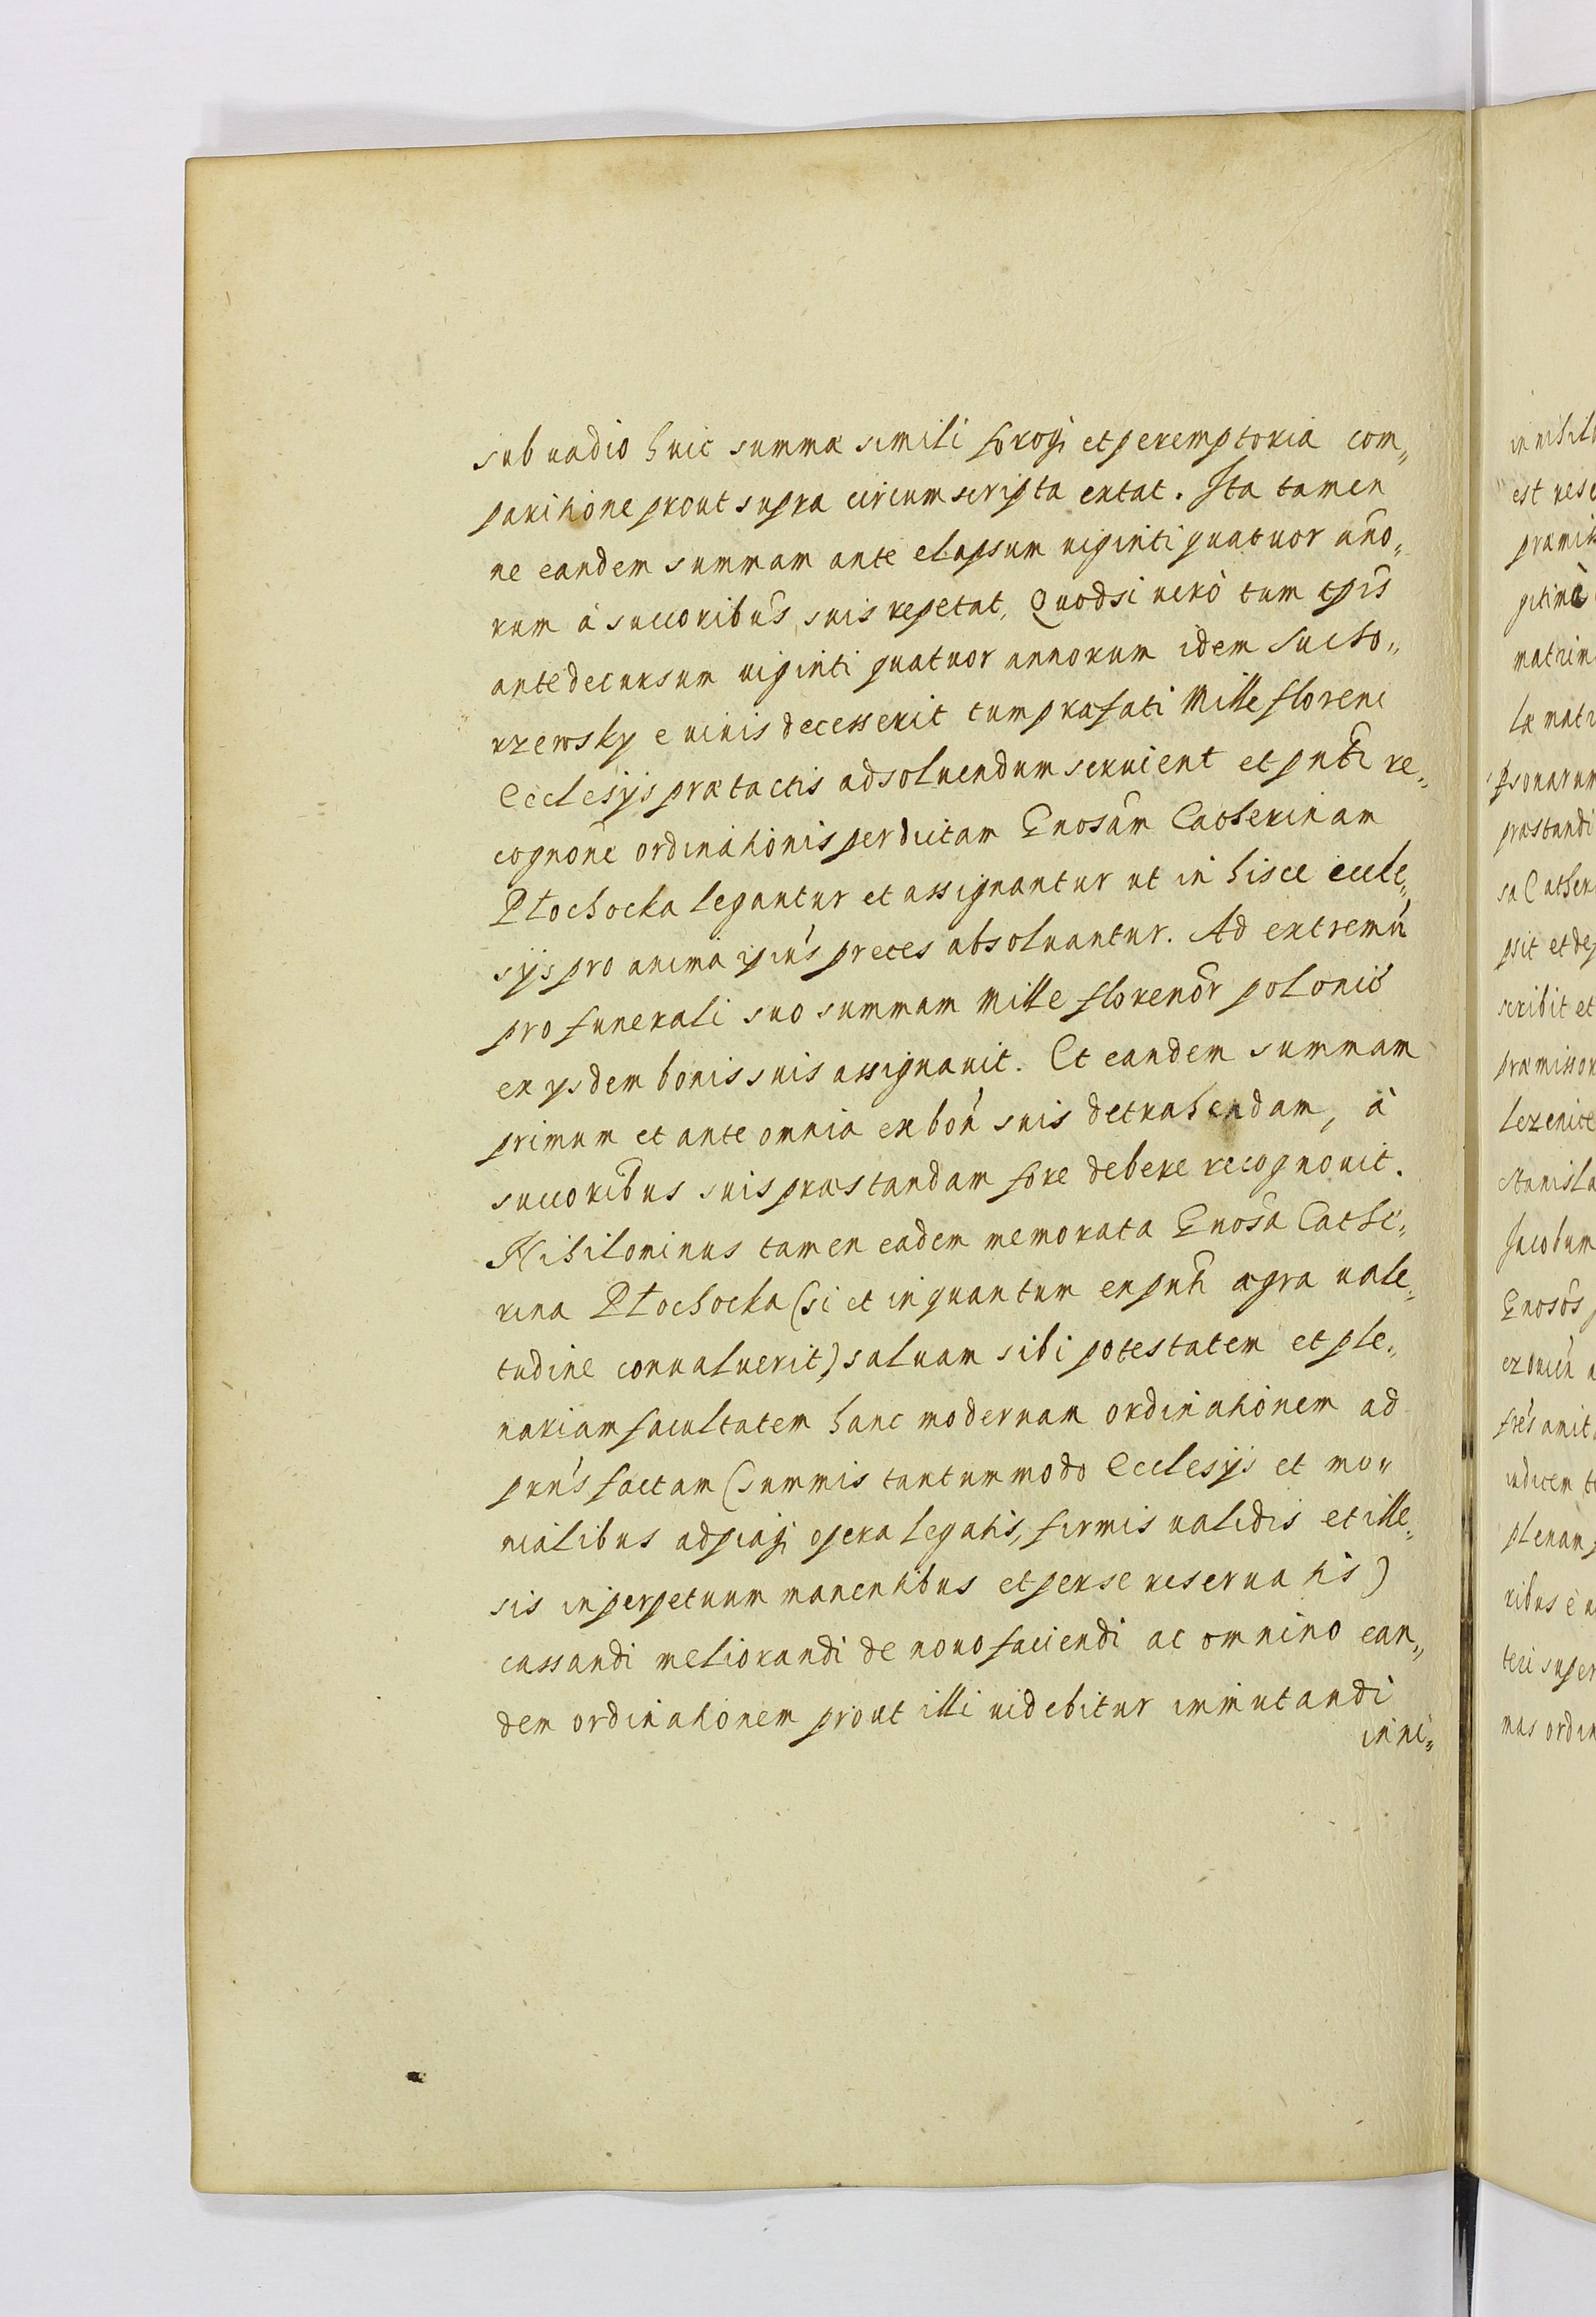 sub uadio huic summæ simili foroqꝫ et peremptoria com„
paritione prout supra circumscripta extat. Ita tamen
ne eandem summam ante elapsum uiginti quatuor año„
rum à succoribus suis repetat, Quodsi uerò tum ipis
ante decursum uiginti quatuor annorum idem Sucho„
rzewsky e uiuis decesserit tum præfati Mille floreni
Ecclesijs prætactis adsoluendum seruient et pnti re„
cognone ordinationis per dictam Gnosam Catherinam
Płochocka legantur et assignantur ut in hisce eccle„
sijs pro anima ipius preces absoluantur. Ad extremũ
pro funerali suo summam Mille florenor polonic
ex ysdem bonis suis assignauit. Et eandem summam
primum et ante omnia ex bon suis detrahendam, à
succoribus suis præstandam fore debere recognouit.
Nihilominus tamen eadem memorata Gnosa Cathe„
rina Płochocka (si et in quantum ex pnti ægra uale„
tudine conualuerit) saluam sibi potestatem et ple„
nariam facultatem hanc modernam ordinationem ad
pnns factam (summis tantummodo Ecclesijs et mo„
nialibus ad piaqꝫ opera legatis, firmis ualidis et ille„
sis in perpetuum manentibus et per se reseruatis)
cassandi meliorandi de nouo faciendi ac omnino ean„
dem ordinationem prout illi uidebitur immutandi
in ni„
in nihilo
est rese
præmis
gitima
matrim
læ matr
psonarum
præstandi
sa Cather
psit et de
scribit et
præmissor
lezenice
Stanisla
Jacobum
Gnosos
ezouien
fres amit
indicem
plenam
ribus e
teri super
mas ordin